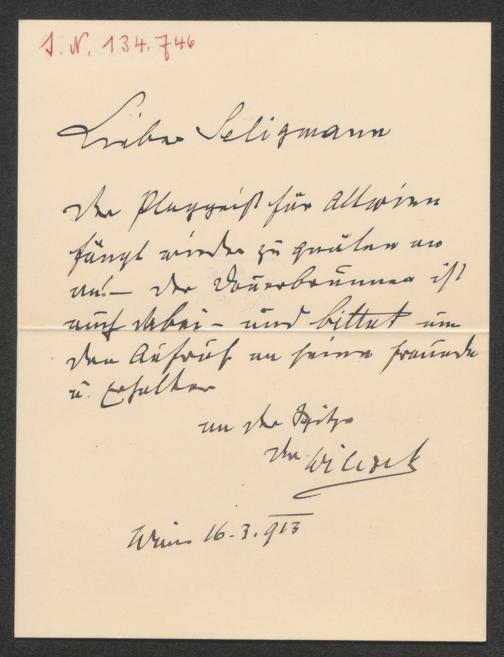 J. N. 134.746
Lieber Seligmann
Der Plaggeist für Altwien
fängt wieder zu quälen an
an! – Der Donnerbrunnen ist
auch dabei – und bittet um
den Aufruf an seine Freunde
u. Erhalter
an der Spitze
der Wilczek
Wien 16.3.913